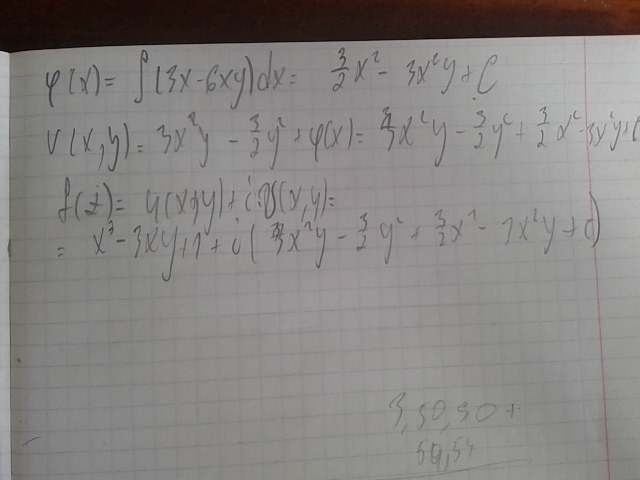 φ(x) = ∫(3x-6xy)dx = 3/2 x² - 3x²y + C
V(x,y) = 3x²y - 3/2 y² + φ(x) = 3x²y - 3/2 y² + 3/2 x² - 3x²y + C
f(z) = u(x,y) + i·V(x,y) =
= x³ - 3xy + 1 + i( 3x²y - 3/2 y² + 3/2 x² - 3x²y + C)
3,50,50 +
50,54